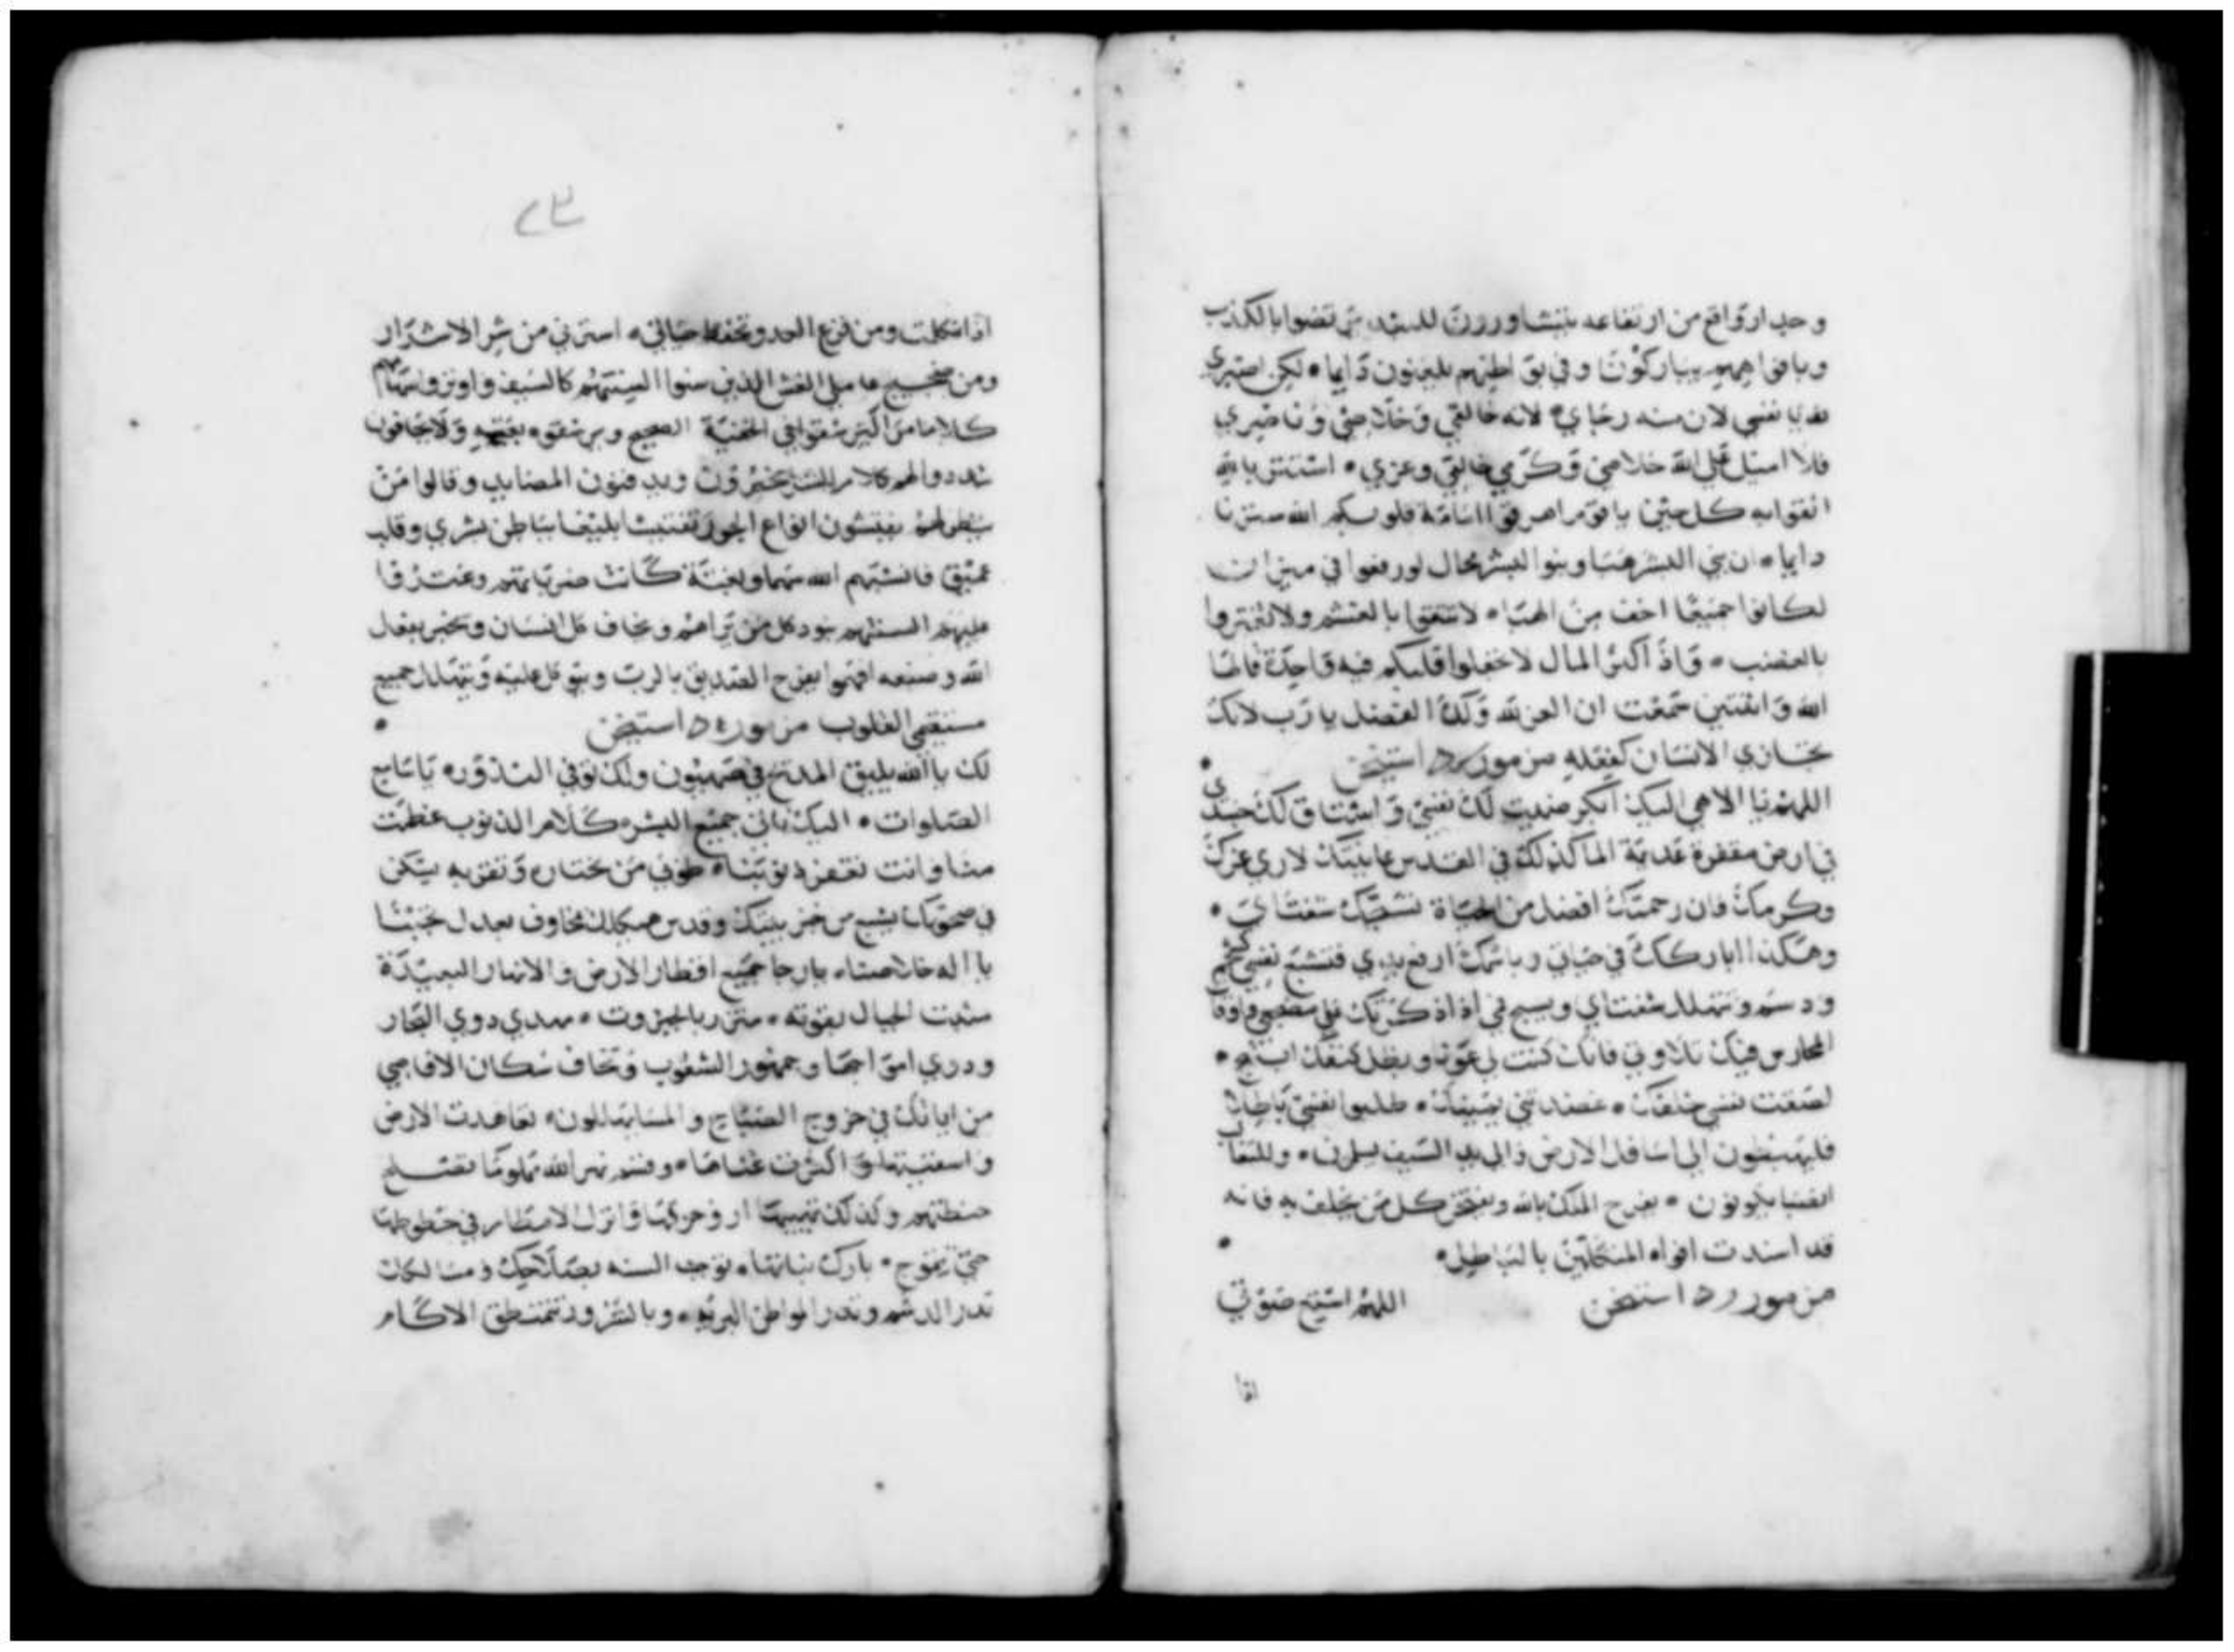 وجدار واقع من ارتفاعه يتشاورون للبثه يرتضوا بالكذب
وبافواههم يباركون وفي بواطنهم يلعنون دايما لكن اصبري
لله يا نفسي لان منه رجاي لانه خالقي وخلاصي وناصري
فلا اميل على الله خلاصي وكرمي خالقي وعزي
اتقوا به كل حين يا قوم اهرقوا امامه قلوبكم الله سترنا
دايما ان بني البشر هبا وبنوا البشر محال لو رفعوا في ميزان
لكانوا جميعا اخف من الهبا لا تتقوا بالغشم ولا تغتروا
بالغضب واذ اكثر المال لا تجعلوا قلبكم فيه واحدة قالها
الله واثنتين سمعت ان العز لله ولك الفضل يا رب لانك
تجازي الانسان كفعله مزمور استيخن
اللهم يا الاهي اليك ابكر صديت لك نفسي واشتاق لك جسدي
في ارض مقفرة عديمة الما كذلك في القدس عاينتك لاري عزك
وكرمك فان رحمتك افضل من الحياة تسبحك شفتاي
وهكذا اباركك في حياتي وباسمك ارفع يدي فتشبع نفسي كشحم
ودسم وتهلل شفتاي ويسبح في اذ اذكرتك على مضجعي واوقات
المحارس فيك تلاوتي فانك كنت لي عونا وبظل كنفك ابتهج
لصقت نفسي خلفك عضدتني يمينك طلبوا نفسي باطلا
فليهبطون الى اسافل الارض والى يد السيف يسلمون وللثعالب
انصبا يكونون يفرح الملك بالله ويفتخر كل من يحلف به فانه
قد اسدت افواه المتكلمين بالباطل
مزمور استيخن اللهم استمع صوتي
اذا
٢٣
اذا تكلت ومن فزع العدو تحفظ حياتي استرني من شر الاشرار
ومن ضجيج عاملي الغش الذين سنوا السنتهم كالسيف واوتروا سهامهم
كلاما من اكثر يتقوا في الخفية الصحيح ويرشقوه بغتة ولا يخافون
شددوا لهم كلام الشر يخبرون ويدفنون المصايد وقالوا من
ينظر لهم يفتشون انواع الجور تفتيشا بليغا بباطن بشري وقلب
عميق فانشبهم الله سهما وبغتة كانت ضرباتهم وعثروا
عليهم السنتهم يود كل من يراهم ويخاف كل انسان ويخبر بفعال
الله وصنعه افهموا يفرح الصديق بالرب ويتوكل عليه ويتهلل جميع
مستقيمي القلوب مزمور استيخن
لك يا الله يليق المديح في صهيون ولك نوفي النذوره يا سامع
الصلوات اليك ياتي جميع البشر كلام الذنوب عظمت
منا وانت تغفر ذنوبنا طوبى من تختاره وتقربه يسكن
في صحونك يشبع من خير بيتك وقدس هيكلك مخاوف بعدل تجيبنا
يا اله خلاصنا يا رجا جميع اقطار الارض والانهار البعيدة
مثبت الجبال بقوته متزر بالجبروت مهدي دوي البحار
ودوي امواجها وجمهور الشعوب وتخاف سكان الاقاصي
من اياتك في خروج الصباح والمسا يهللون تعاهدت الارض
واسقيتها واكثرت غناها وقسم نهر الله مملوما تصلح
حنطتهم وكذلك تهيها اروي حرثها وانزل الامطار في خطوطها
حتى تموج بارك نباتها توجت السنه بصلاحك ومسالكك
تدر الدسم وتدر المواطن البرية وبالسرور تتمنطق الاكام